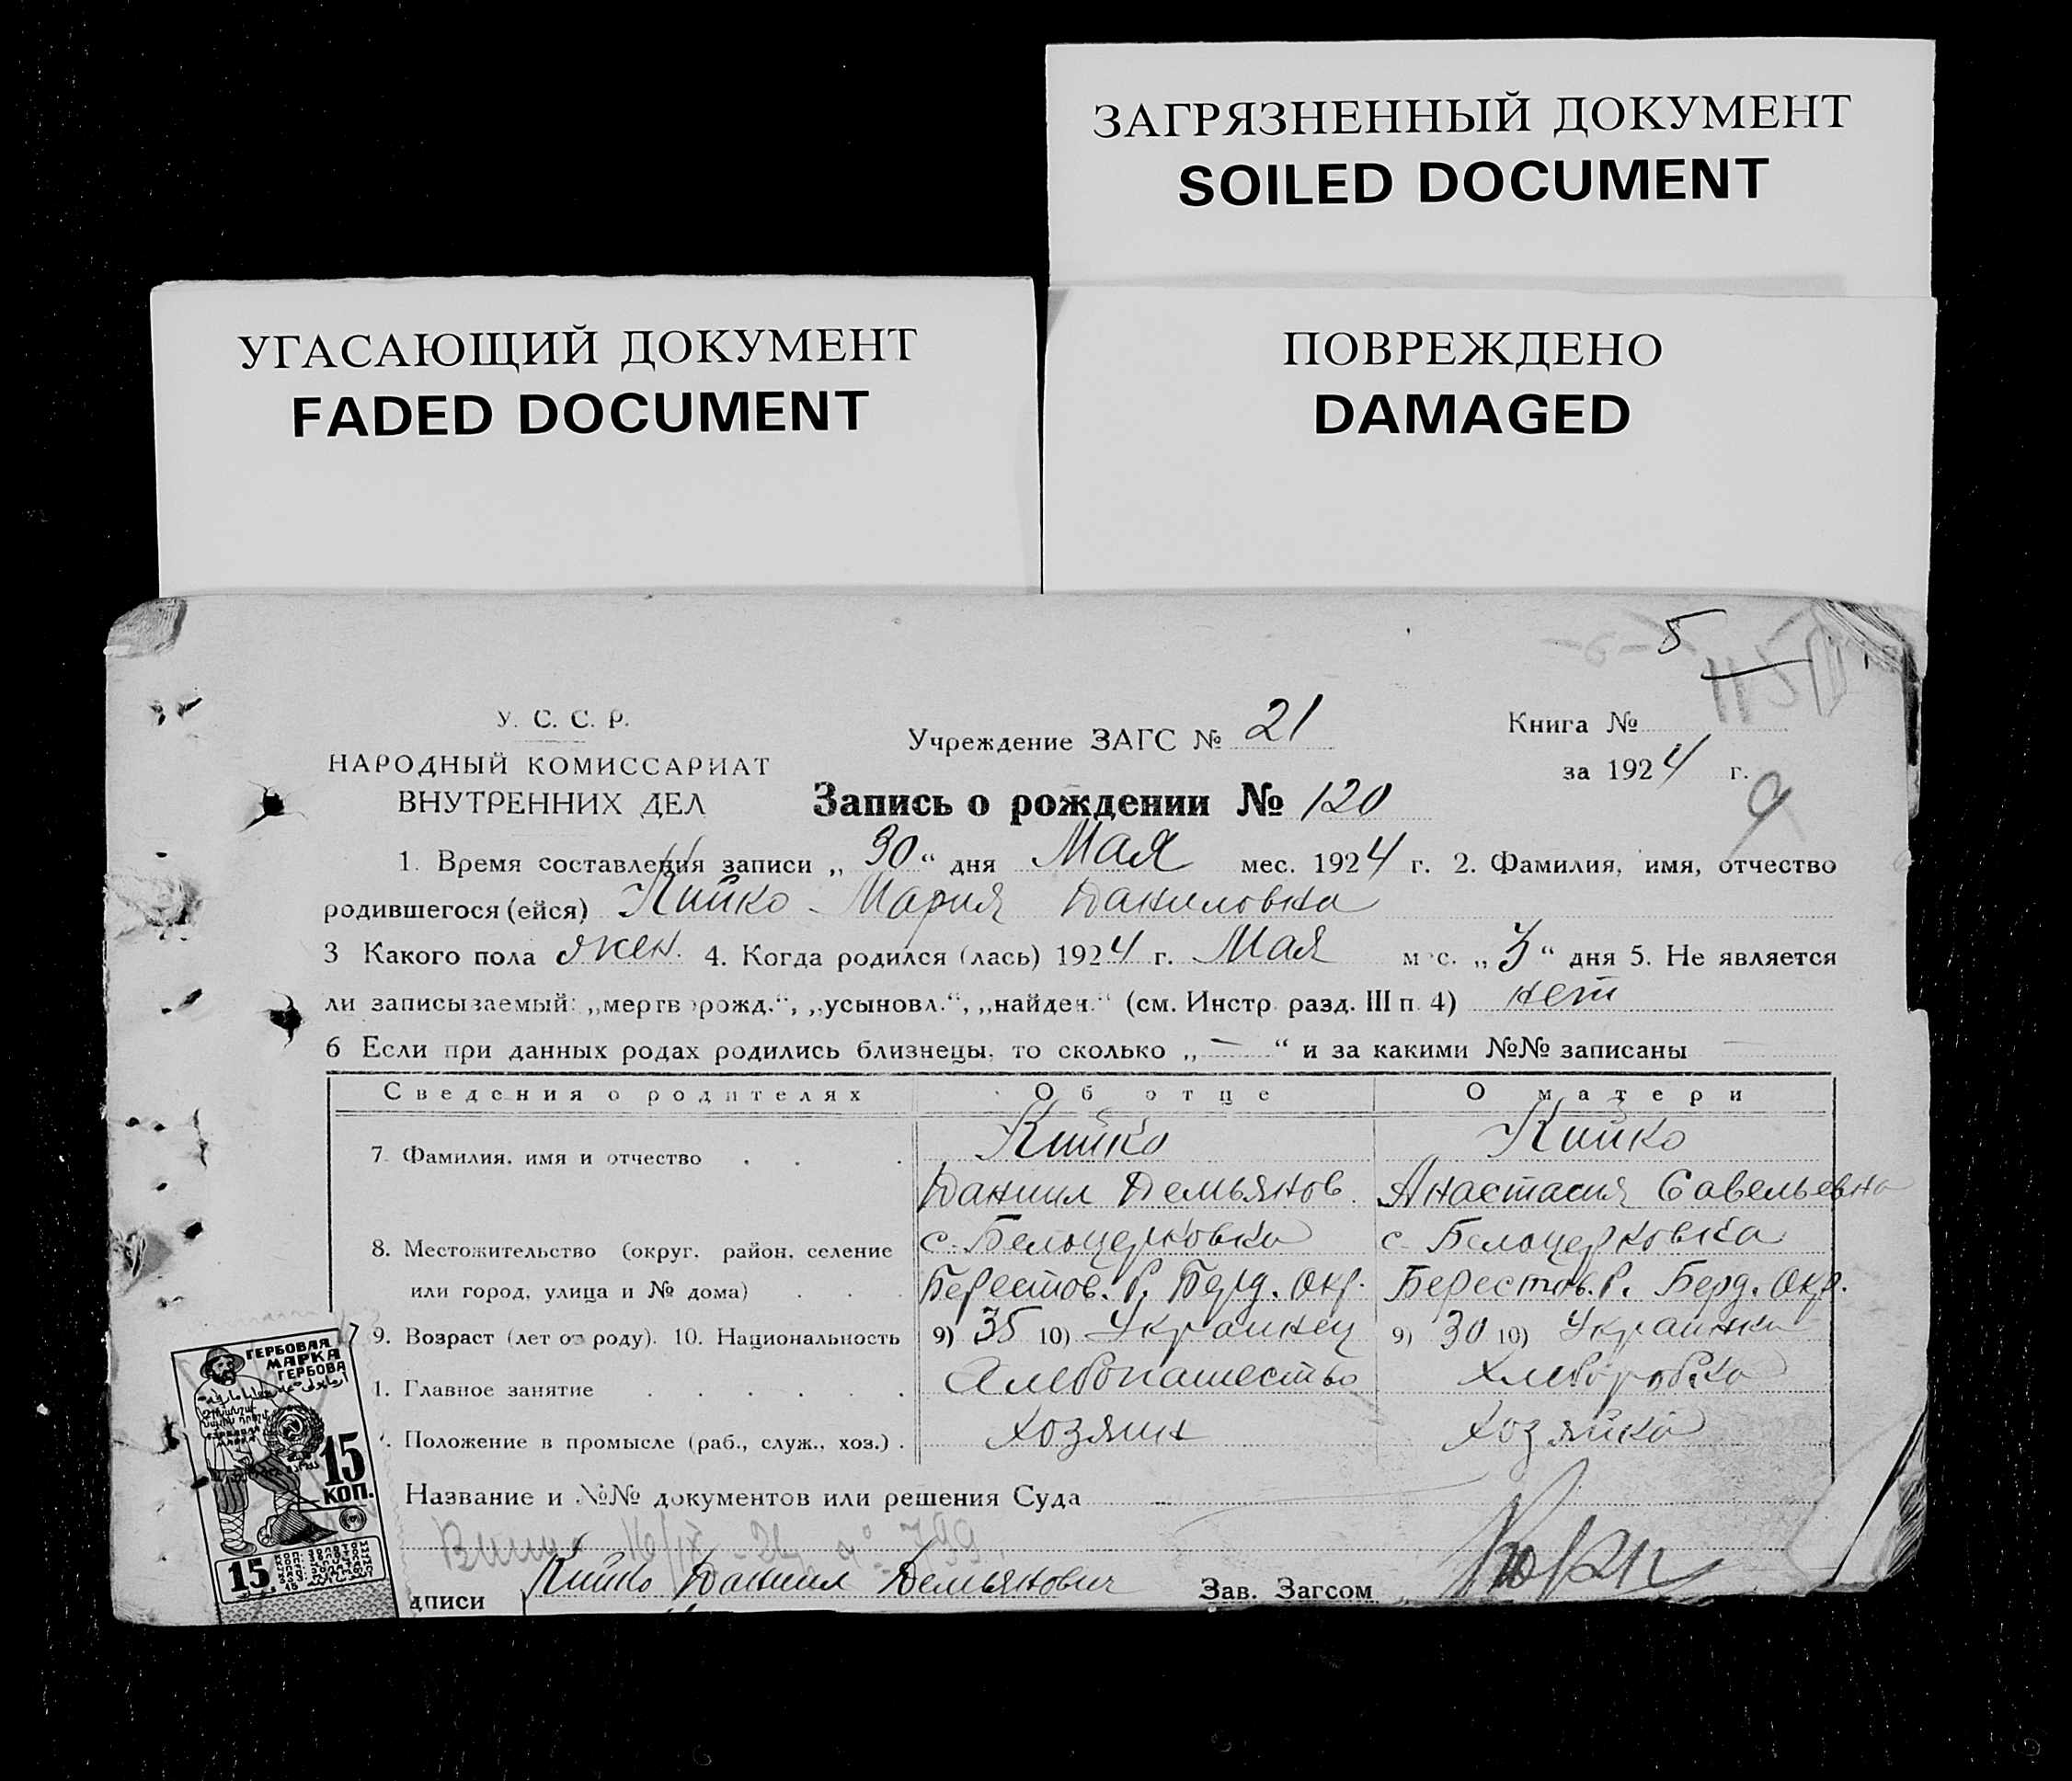 ЗАГРЯЗНЕННЫЙ ДОКУМЕНТ
SOILED DOCUMENT
УГАСАЮЩИЙ ДОКУМЕНТ
FADED DOCUMENT
ПОВРЕЖДЕНО
DAMAGED
5
У. С. С. Р.
НАРОДНЫЙ КОМИССАРИАТ
ВНУТРЕННИХ ДЕЛ
Учреждение ЗАГС № 21
Книга №
за 1924 г.
Запись о рождении № 120
1. Время составления записи „30“ дня Мая мес. 1924 г. 2. Фамилия, имя, отчество
родившегося (ейся) Кийко Мария Даниловна
3 Какого пола жен. 4. Когда родился (лась) 1924 г. Мая мес. „3“ дня 5. Не является
ли записываемый: „мертворожд.“, „усыновл.“, „найден.“ (см. Инстр. разд. III п. 4) нет
6 Если при данных родах родились близнецы, то сколько „—“ и за какими №№ записаны —
Сведения о родителях Об отце О матери
7. Фамилия, имя и отчество Кийко Кийко
Даниил Демьянов. Анастасия Савельевна
8. Местожительство (округ, район, селение с. Белоцерковка с. Белоцерковка
или город, улица и № дома) Берестов. Р. Берд. Окр. Берестов. Р. Берд. Окр.
9. Возраст (лет от роду). 10. Национальность 9) 35 10) Украинец 9) 30 10) Украинка
1. Главное занятие Хлебопашество Хлеборобка
Положение в промысле (раб., служ., хоз.) Хозяин Хозяйка
Название и №№ документов или решения Суда —
дписи Кийко Даниил Демьянович Зав. Загсом
ГЕРБОВАЯ
МАРКА
ГЕРБОВА
15
КОП.
15